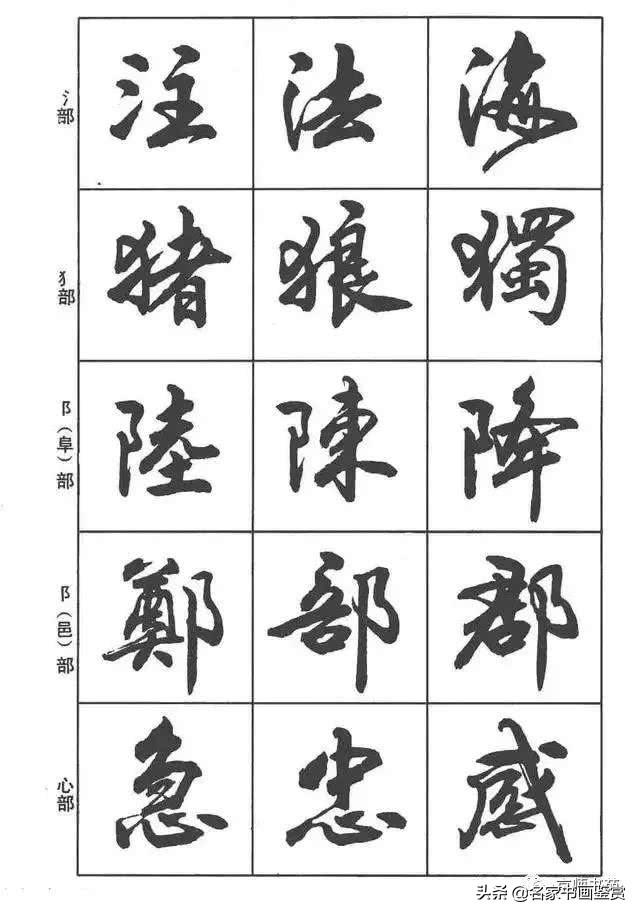 氵部 注 法 海
犭部 猪 狼 獨
阝(阜)部 陸 陳 降
阝(邑)部 鄭 部 郡
心部 急 忠 感
头条 @名家书画鉴赏